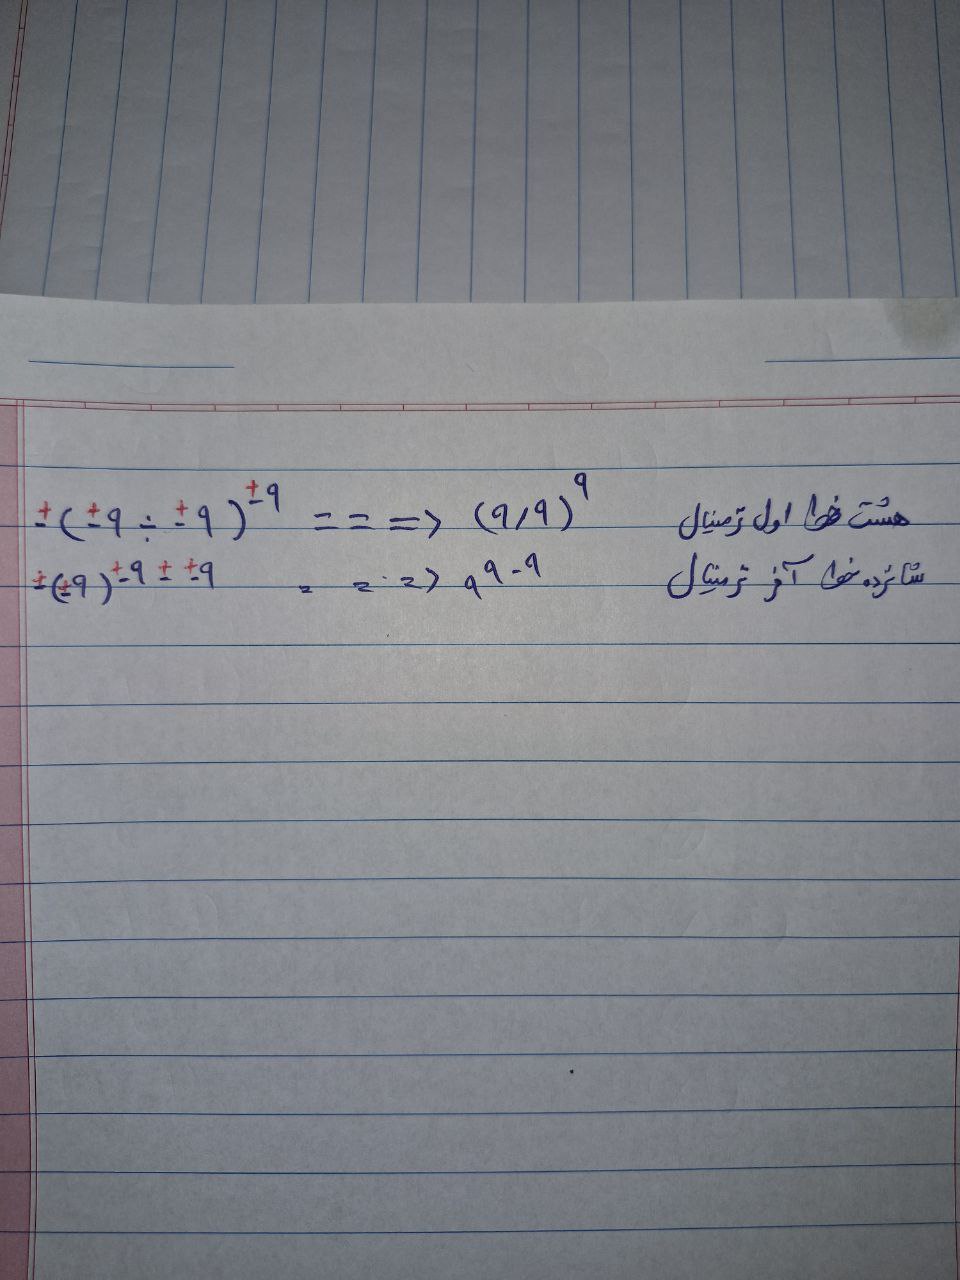 ±(±9 ÷ ±9)^±9 = = => (9/9)^9 هشت خط اول ترمینال
±(±9)^±9 ± ±9 = = => 9^9-9 شانزده خط آخر ترمینال